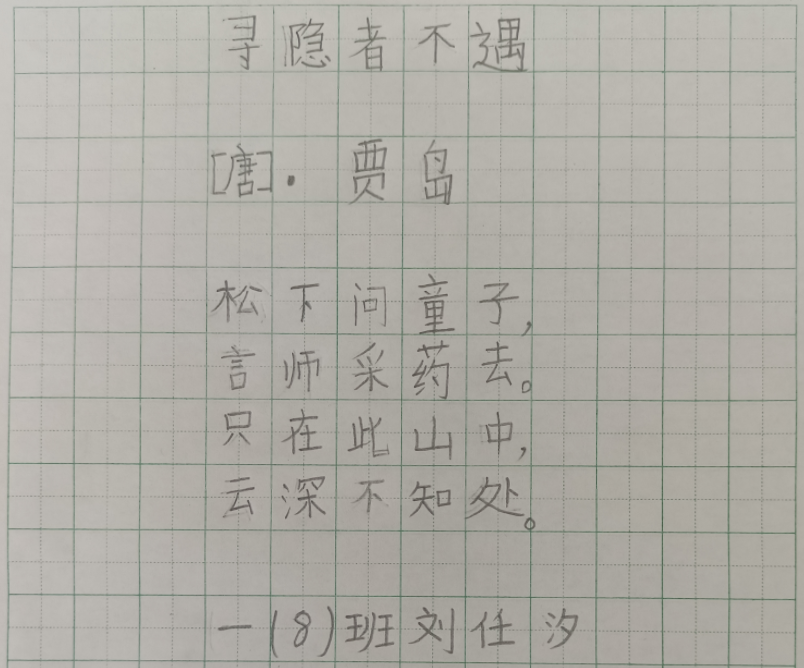 寻隐者不遇
[唐]·贾岛
松下问童子，
言师采药去。
只在此山中，
云深不知处。
一(8)班刘任汐